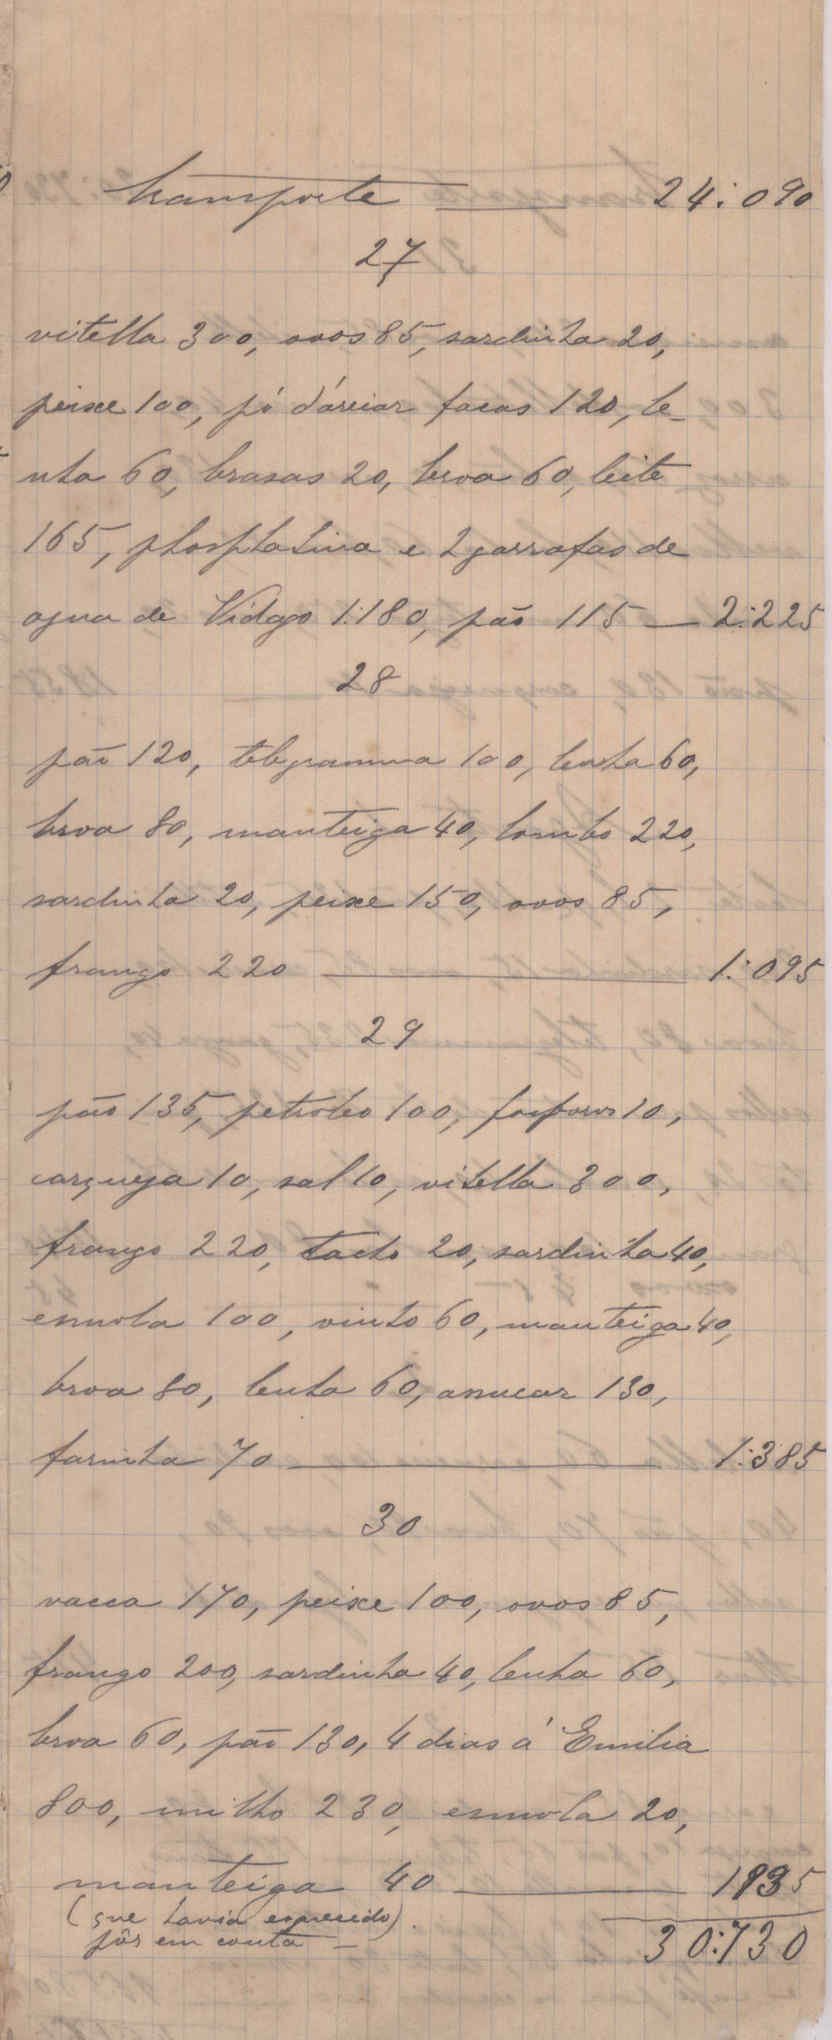 Transporte — 24:090
27
vitella 300, ovos 85, sardinha 20,
peixe 100, pó d'áreiar facas 120, le-
nha 60, brasas 20, broa 60, leite
165, phosphatina e 2 garrafas de
agua de Vidago 1:180, pão 115 — 2:225
28
pão 120, telegramma 100, lenha 60,
broa 80, manteiga 40, lombo 220,
sardinha 20, peixe 150, ovos 85,
frango 220 — 1:095
29
pão 135, petroleo 100, fosforos 10,
carqueja 10, sal 10, vitella 300,
frango 220, tacho 20, sardinha 40,
esmola 100, vinho 60, manteiga 40,
broa 80, lenha 60, assucar 130,
farinha 70 — 1:385
30
vacca 170, peixe 100, ovos 85,
frango 200, sardinha 40, lenha 60,
broa 60, pão 130, 4 dias á Emilia
800, milho 230, esmola 20,
manteiga 40 — 1935
(que havia esquecido).
pôr em conta —
30:730